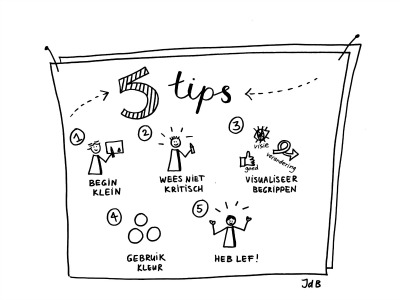 5 tips
1
2
3
visie
goed
verandering
BEGIN
KLEIN
WEES NIET
KRITISCH
VISUALISEER
BEGRIPPEN
4
5
GEBRUIK
KLEUR
HEB LEF!
JdB